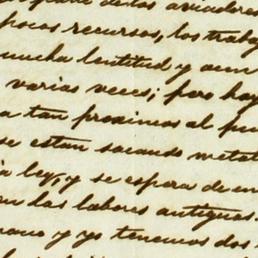 pocos recursos, los trabaj
mucha lentitud y aun
varias veces; pero hoy
a tan proximos al pu
se estan sacando metal
ley, y se espera de un
las labores antiguas.
y yo tenemos dos